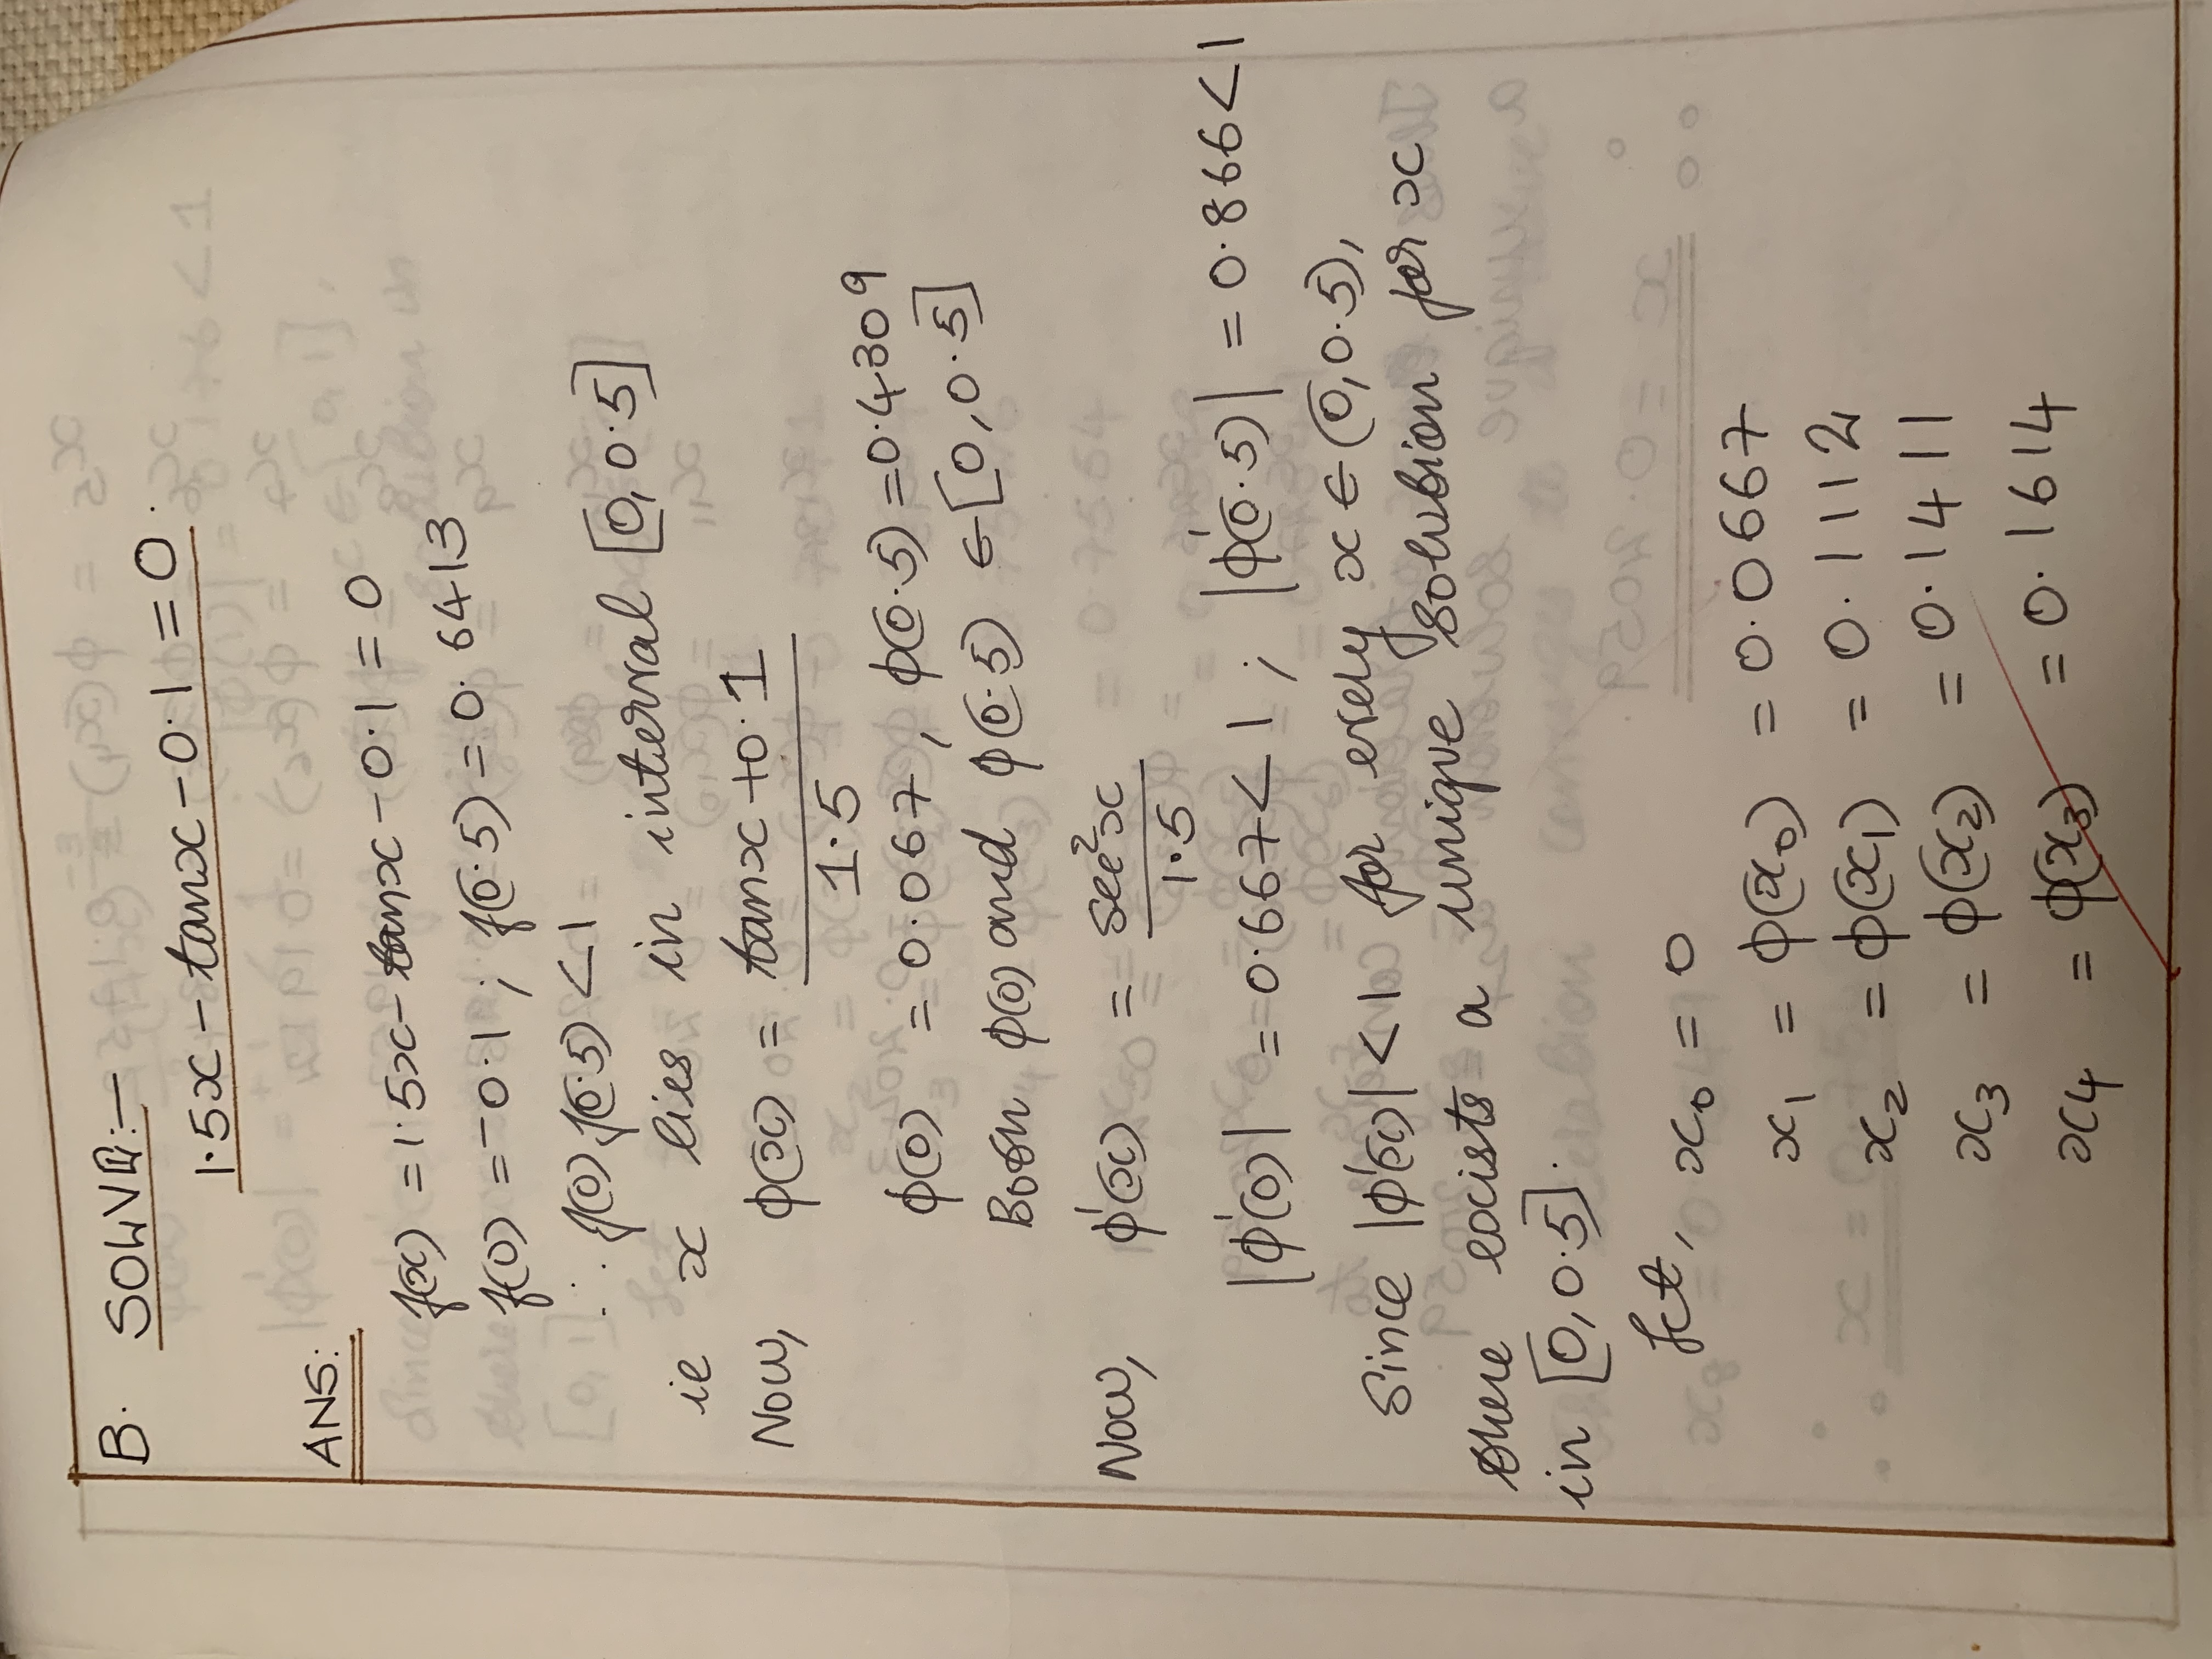 B. SOLVE:-
1.5x - tanx - 0.1 = 0.
ANS:
f(x) = 1.5x - tanx - 0.1 = 0
f(0) = -0.1 ; f(0.5) = 0.6413
∴ f(0) f(0.5) < 1
ie x lies in interval [0, 0.5]
Now, ϕ(x) = tanx + 0.1 / 1.5
ϕ(0) = 0.067, ϕ(0.5) = 0.4309
Both ϕ(0) and ϕ(0.5) ∈ [0, 0.5]
Now, ϕ'(x) = sec²x / 1.5
|ϕ'(0)| = 0.667 < 1 ; |ϕ'(0.5)| = 0.866 < 1
Since |ϕ'(x)| < 1 for every x ∈ (0, 0.5),
there exists a unique solution for x
in [0, 0.5].
Let, x₀ = 0
x₁ = ϕ(x₀) = 0.0667
x₂ = ϕ(x₁) = 0.1112
x₃ = ϕ(x₂) = 0.1411
x₄ = ϕ(x₃) = 0.1614